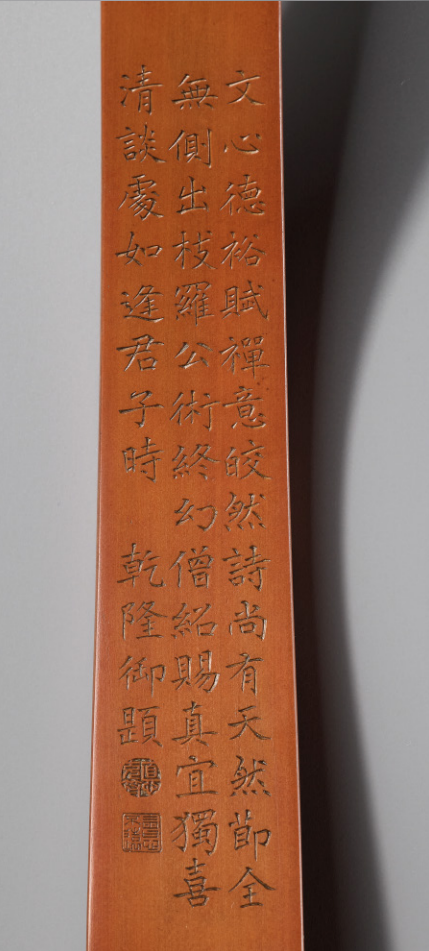 文心德裕賦禪意皎然詩尚有天然節全
無側出枝羅公術終幻僧紹賜真宜獨喜
清談處如逢君子時 乾隆御題